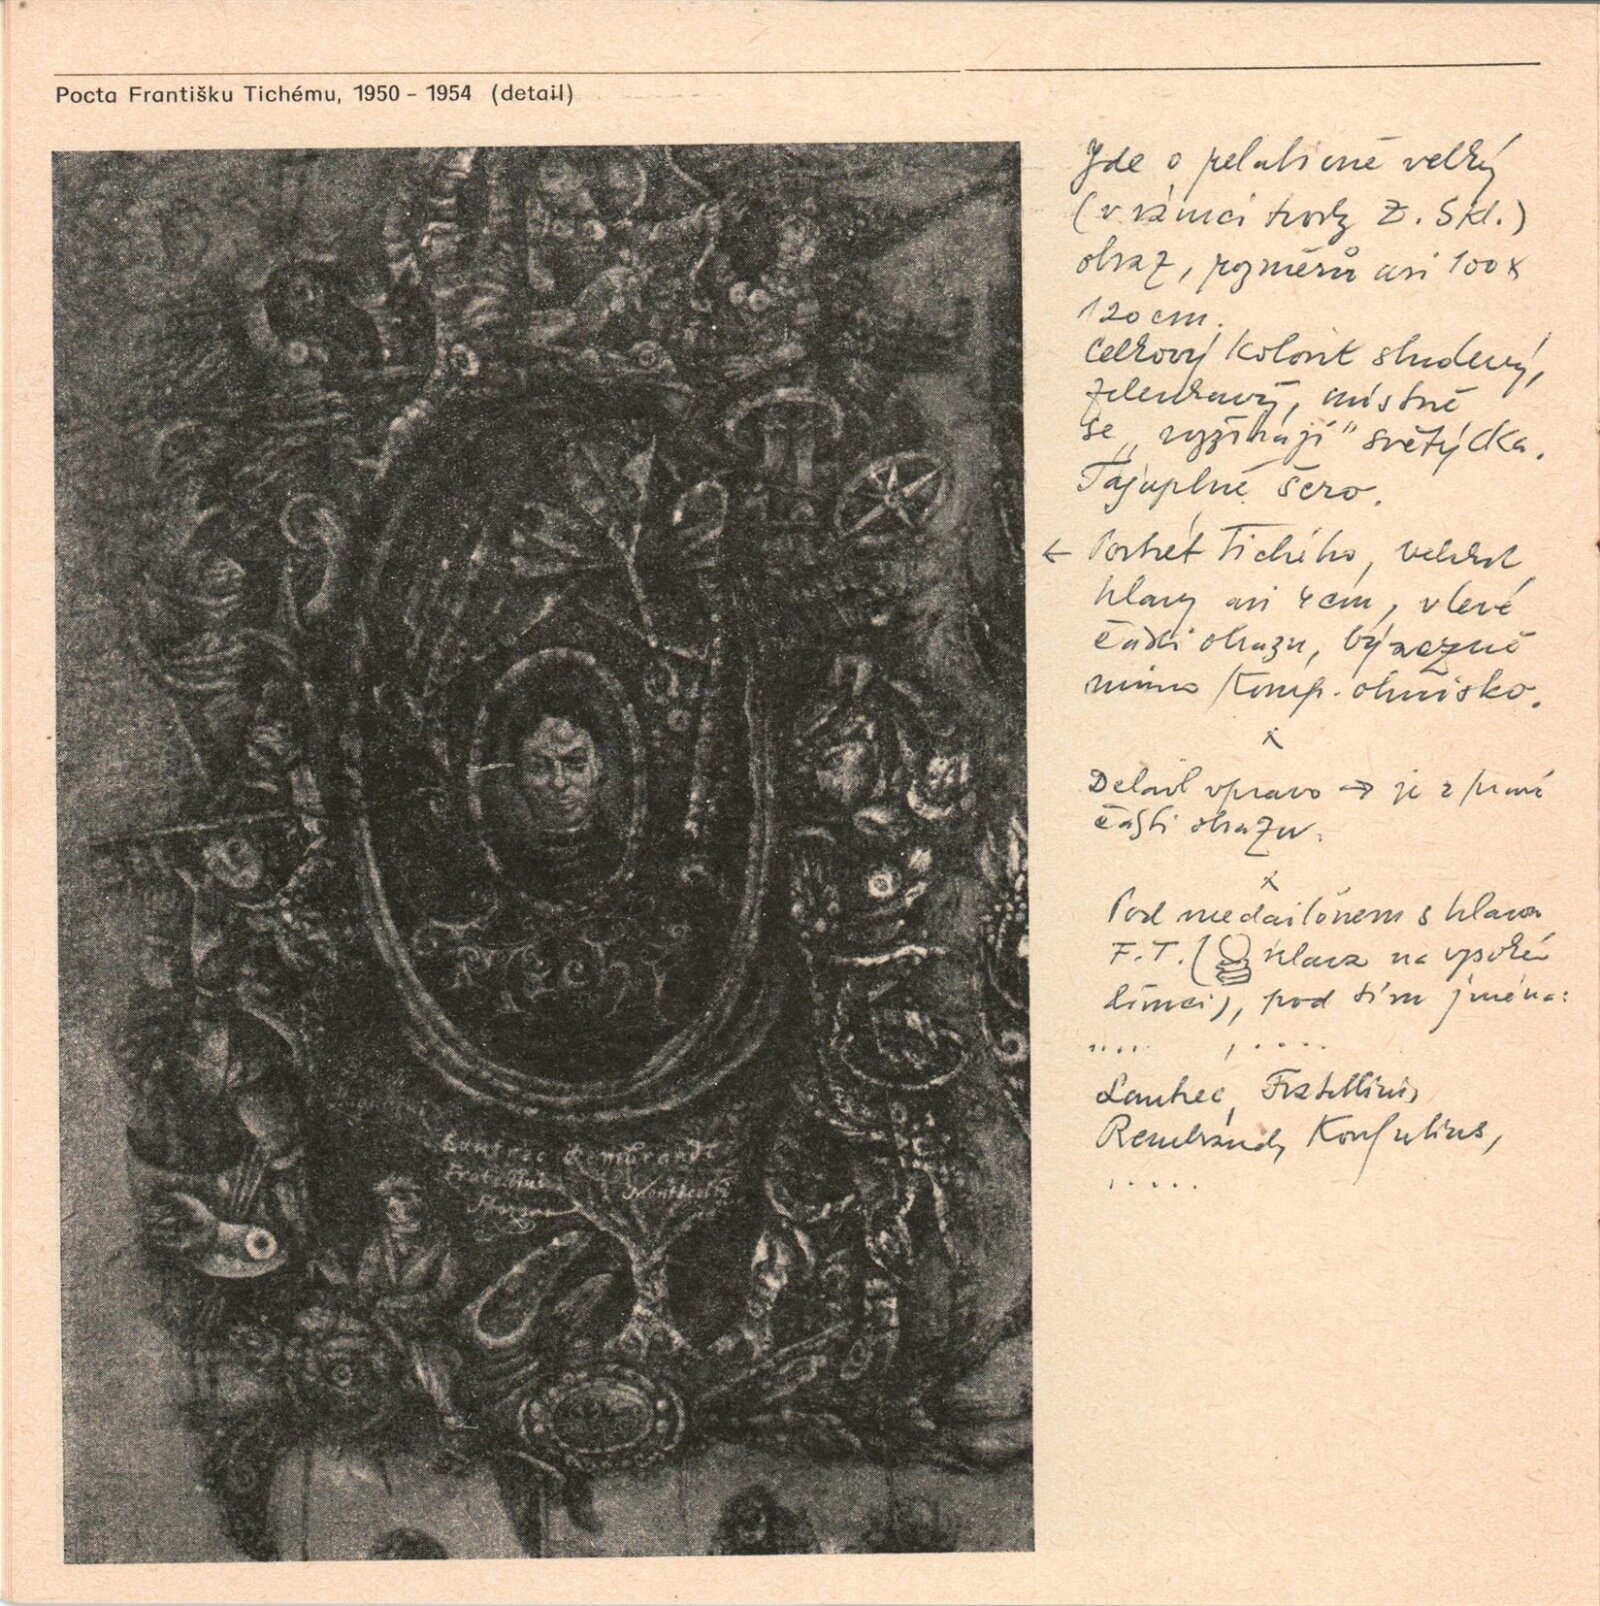 Pocta Františku Tichému, 1950 – 1954 (detail)
Jde o relativně velký
(v rámci tvorby Z. Skl.)
obraz, rozměrů asi 100 x
120 cm.
Celkový kolorit studený,
zelenkavý, místně
se „vyžíhají" světýlka.
Tajuplné šero.
← Portrét Tichého, velikost
hlavy asi 4 cm, v levé
části obrazu, výrazně
mimo komp. ohnisko.
x
Detail vpravo → je z pravé
části obrazu.
x
Pod medailónem s hlavou
F.T. ( hlava na vysokém
límci), pod tím jména:
.... , ....
Lautrec, Fratellini,
Rembrandt, Konfucius,
.....
Lautrec Rembrandt
Fratellini